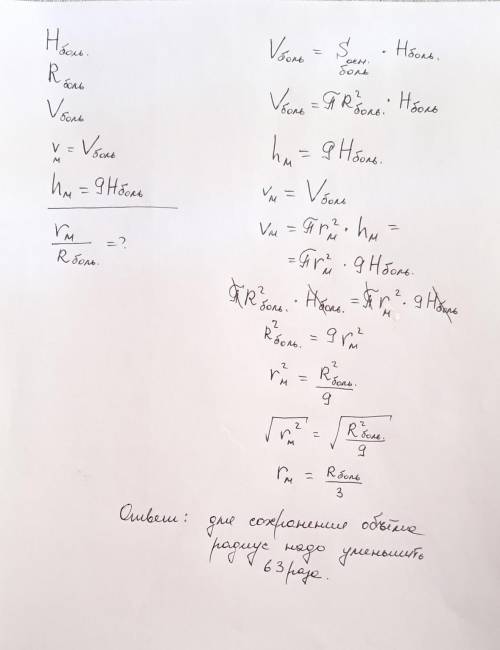 Hболь.
Rболь
Vболь
vм = Vболь
hм = 9Hболь
rм / Rболь. = ?
Vболь = Sосн. боль · Hболь.
Vболь = πR²боль. · Hболь
hм = 9Hболь.
vм = Vболь
vм = πr²м · hм =
= πr²м · 9Hболь.
πR²боль. · Hболь. = πr²м · 9Hболь
R²боль. = 9r²м
r²м = R²боль. / 9
√r²м = √R²боль. / 9
rм = Rболь / 3
Ответ: для сохранения объёма
радиус надо уменьшить
в 3 раза.